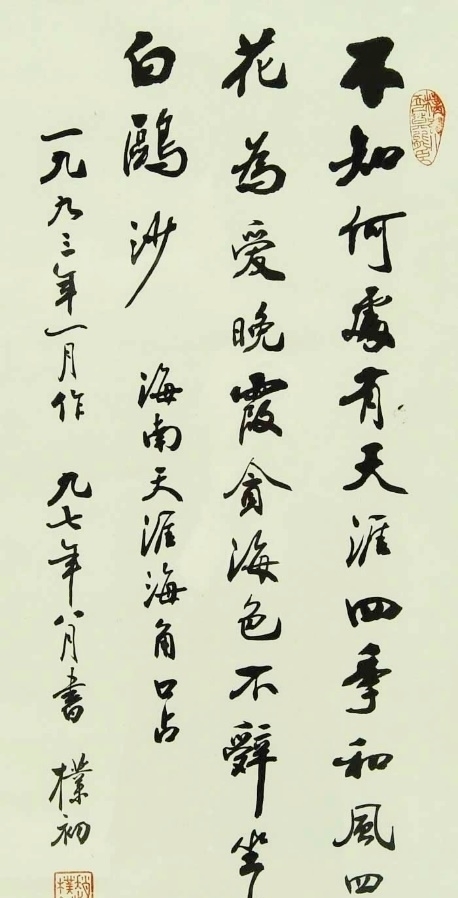 不知何處有天涯四季和風四
花為愛晚霞貪海色不辭坐
白鷗沙
海南天涯海角口占
一九九三年一月作 九七年八月書 樸初